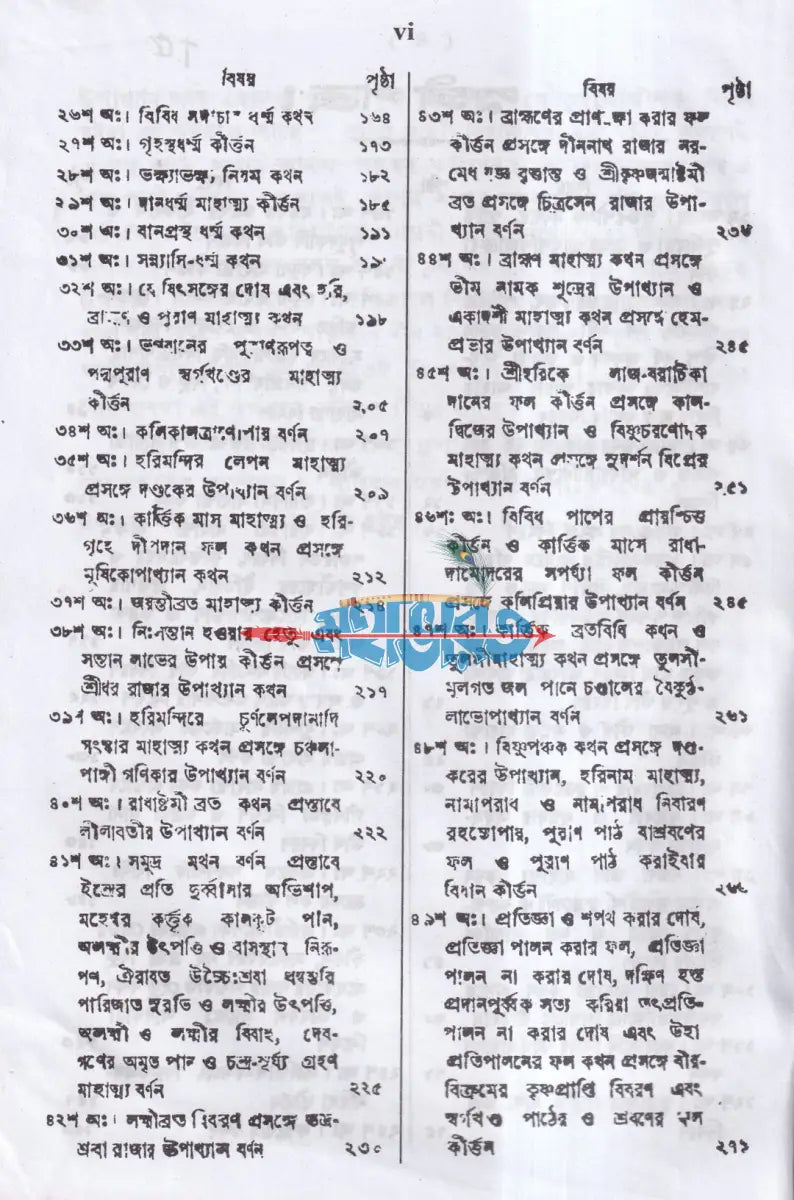 vi
বিষয় পৃষ্ঠা
২৬শ অঃ। বিবিধ ধর্ম্ম কথন ১৬৪
২৭শ অঃ। গৃহস্থধর্ম্ম কীর্ত্তন ১৭৩
২৮শ অঃ। ভক্ষ্যাভক্ষ্য নিয়ম কথন ১৮২
২৯শ অঃ। দানধর্ম্ম মাহাত্ম্য কীর্ত্তন ১৮৫
৩০শ অঃ। বানপ্রস্থ ধর্ম্ম কথন ১৯১
৩১শ অঃ। সন্ন্যাসি-ধর্ম্ম কথন
৩২শ অঃ। যোষিৎসঙ্গের দোষ এবং হরি,
ব্রাহ্মণ ও পুরাণ মাহাত্ম্য কথন ১৯৮
৩৩শ অঃ। ভগবানের পুরাণরূপত্ব ও
পদ্মপুরাণ স্বর্গখণ্ডের মাহাত্ম্য
কীর্ত্তন ২০৫
৩৪শ অঃ। কলিকালত্রাণোপায় বর্ণন ২০৭
৩৫শ অঃ। হরিমন্দির লেপন মাহাত্ম্য
প্রসঙ্গে দণ্ডকের উপাখ্যান বর্ণন ২০৯
৩৬শ অঃ। কার্ত্তিক মাস মাহাত্ম্য ও হরি-
গৃহে দীপদান ফল কথন প্রসঙ্গে
মূষিকোপাখ্যান কথন ২১২
৩৭শ অঃ। জয়ন্তীব্রত মাহাত্ম্য কীর্ত্তন ২১৪
৩৮শ অঃ। নিঃসন্তান হওয়ার হেতু এবং
সন্তান লাভের উপায় কীর্ত্তন প্রসঙ্গে
শ্রীধর রাজার উপাখ্যান কথন ২১৭
৩৯শ অঃ। হরিমন্দিরে চূর্ণলেপদানাদি
সংস্কার মাহাত্ম্য কথন প্রসঙ্গে চঞ্চলা-
পাঙ্গী গণিকার উপাখ্যান বর্ণন ২২০
৪০শ অঃ। রাধাষ্টমী ব্রত কথন প্রস্তাবে
লীলাবতীর উপাখ্যান বর্ণন ২২২
৪১শ অঃ। সমুদ্র মথন বর্ণন প্রস্তাবে
ইন্দ্রের প্রতি দুর্ব্বাসার অভিশাপ,
মহেশ্বর কর্ত্তৃক কালকূট পান,
অলক্ষ্মীর উৎপত্তি ও বাসস্থান নিরূ-
পণ, ঐরাবত উচ্চৈঃশ্রবা ধন্বন্তরি
পারিজাত সুরভি ও লক্ষ্মীর উৎপত্তি,
অলক্ষ্মী ও লক্ষ্মীর বিবাহ, দেব-
গণের অমৃত পান ও চন্দ্র-সূর্য্য গ্রহণ
মাহাত্ম্য বর্ণন ২২৫
৪২শ অঃ। লক্ষ্মীব্রত বিবরণ প্রসঙ্গে ভদ্র-
শ্রবা রাজার উপাখ্যান বর্ণন ২৩০
বিষয় পৃষ্ঠা
৪৩শ অঃ। ব্রাহ্মণের প্রাণরক্ষা করার ফল
কীর্ত্তন প্রসঙ্গে দীননাথ রাজার নর-
মেধ যজ্ঞ বৃত্তান্ত ও শ্রীকৃষ্ণজন্মাষ্টমী
ব্রত প্রসঙ্গে চিত্রসেন রাজার উপা-
খ্যান বর্ণন
৪৪শ অঃ। ব্রাহ্মণ মাহাত্ম্য কথন প্রসঙ্গে
ভীম নামক শূদ্রের উপাখ্যান ও
একাদশী মাহাত্ম্য কথন প্রসঙ্গে হেম-
প্রভার উপাখ্যান বর্ণন ২৪৫
৪৫শ অঃ। শ্রীহরিকে লাজ-বরাটিকা
দানের ফল কীর্ত্তন প্রসঙ্গে কাল-
দ্বিজের উপাখ্যান ও বিষ্ণুচরণোদক
মাহাত্ম্য কথন প্রসঙ্গে সুদর্শন বিপ্রের
উপাখ্যান বর্ণন ২৫১
৪৬শ অঃ। বিবিধ পাপের প্রায়শ্চিত্ত
কীর্ত্তন ও কার্ত্তিক মাসে রাধা-
দামোদরের সপর্য্যা ফল কীর্ত্তন
প্রসঙ্গে কলিপ্রিয়ার উপাখ্যান বর্ণন ২৪৫
মহাভারত
৪৭শ অঃ। কার্ত্তিক ব্রতবিধি কথন ও
তুলসীমাহাত্ম্য কথন প্রসঙ্গে তুলসী-
মূলগত জল পানে চণ্ডালের বৈকুণ্ঠ-
লাভোপাখ্যান বর্ণন ২৬১
৪৮শ অঃ। বিষ্ণুপঞ্চক কথন প্রসঙ্গে দণ্ড-
করের উপাখ্যান, হরিনাম মাহাত্ম্য,
নামাপরাধ ও নামাপরাধ নিবারণ
রহস্তোপায়, পুরাণ পাঠ বাশ্রবণের
ফল ও পুরাণ পাঠ করাইবার
বিধান কীর্ত্তন
৪৯শ অঃ। প্রতিজ্ঞা ও শপথ করার দোষ,
প্রতিজ্ঞা পালন করার ফল, প্রতিজ্ঞা
পালন না করার দোষ, দক্ষিণ হস্ত
প্রদানপূর্ব্বক সত্য করিয়া তৎপ্রতি-
পালন না করার দোষ এবং উহা
প্রতিপালনের ফল কথন প্রসঙ্গে বীর-
বিক্রমের কৃষ্ণপ্রাপ্তি বিবরণ এবং
পাঠের ও শ্রবণের ফল
কীর্ত্তন ২৭১